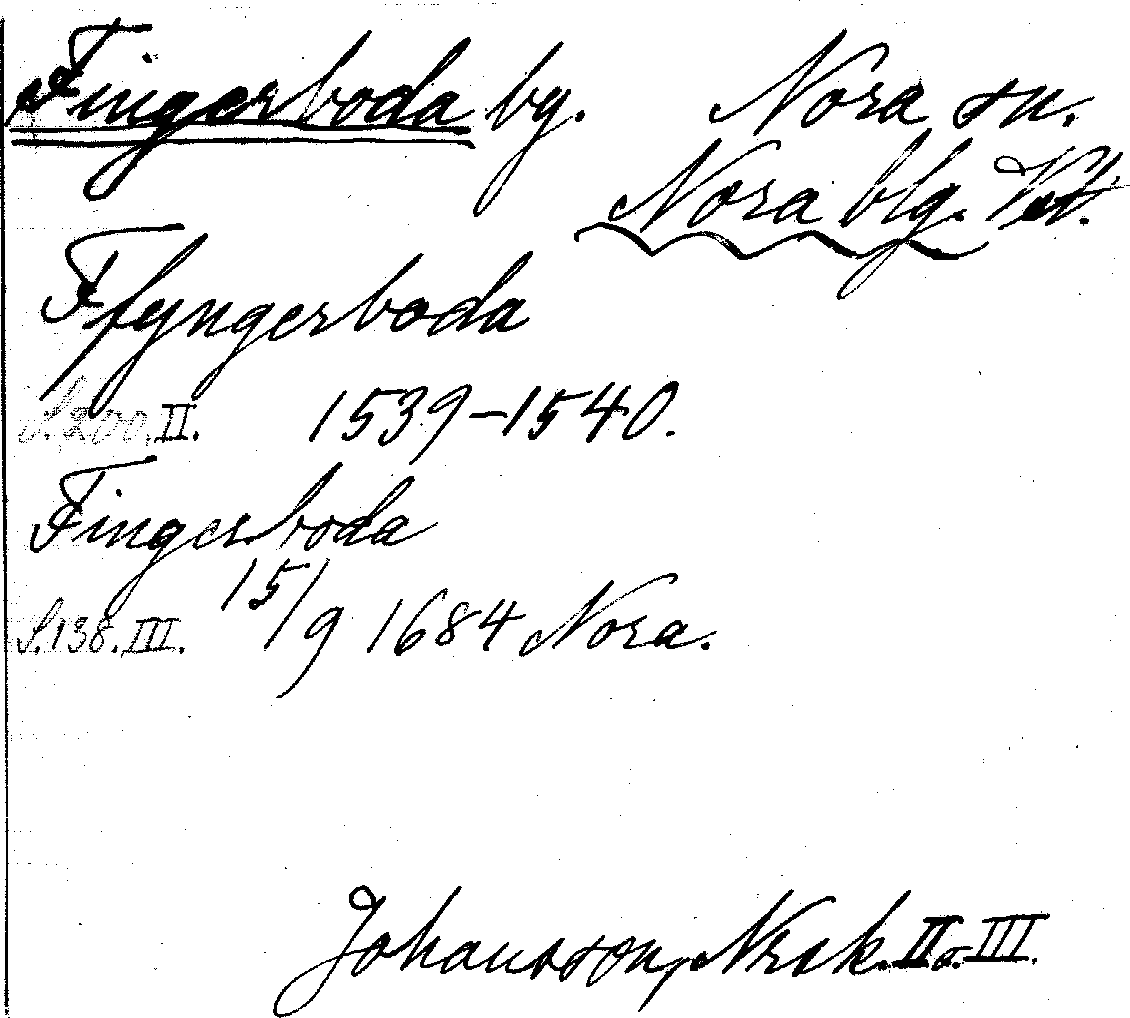 Fingerboda by. Nora sn.
Nora blg. Vstm.
Ffyngerboda
S.200.II. 1539-1540.
Fingerboda
S.138.III. 15/9 1684 Nora.
Johansson, Nrsk. II o. III.